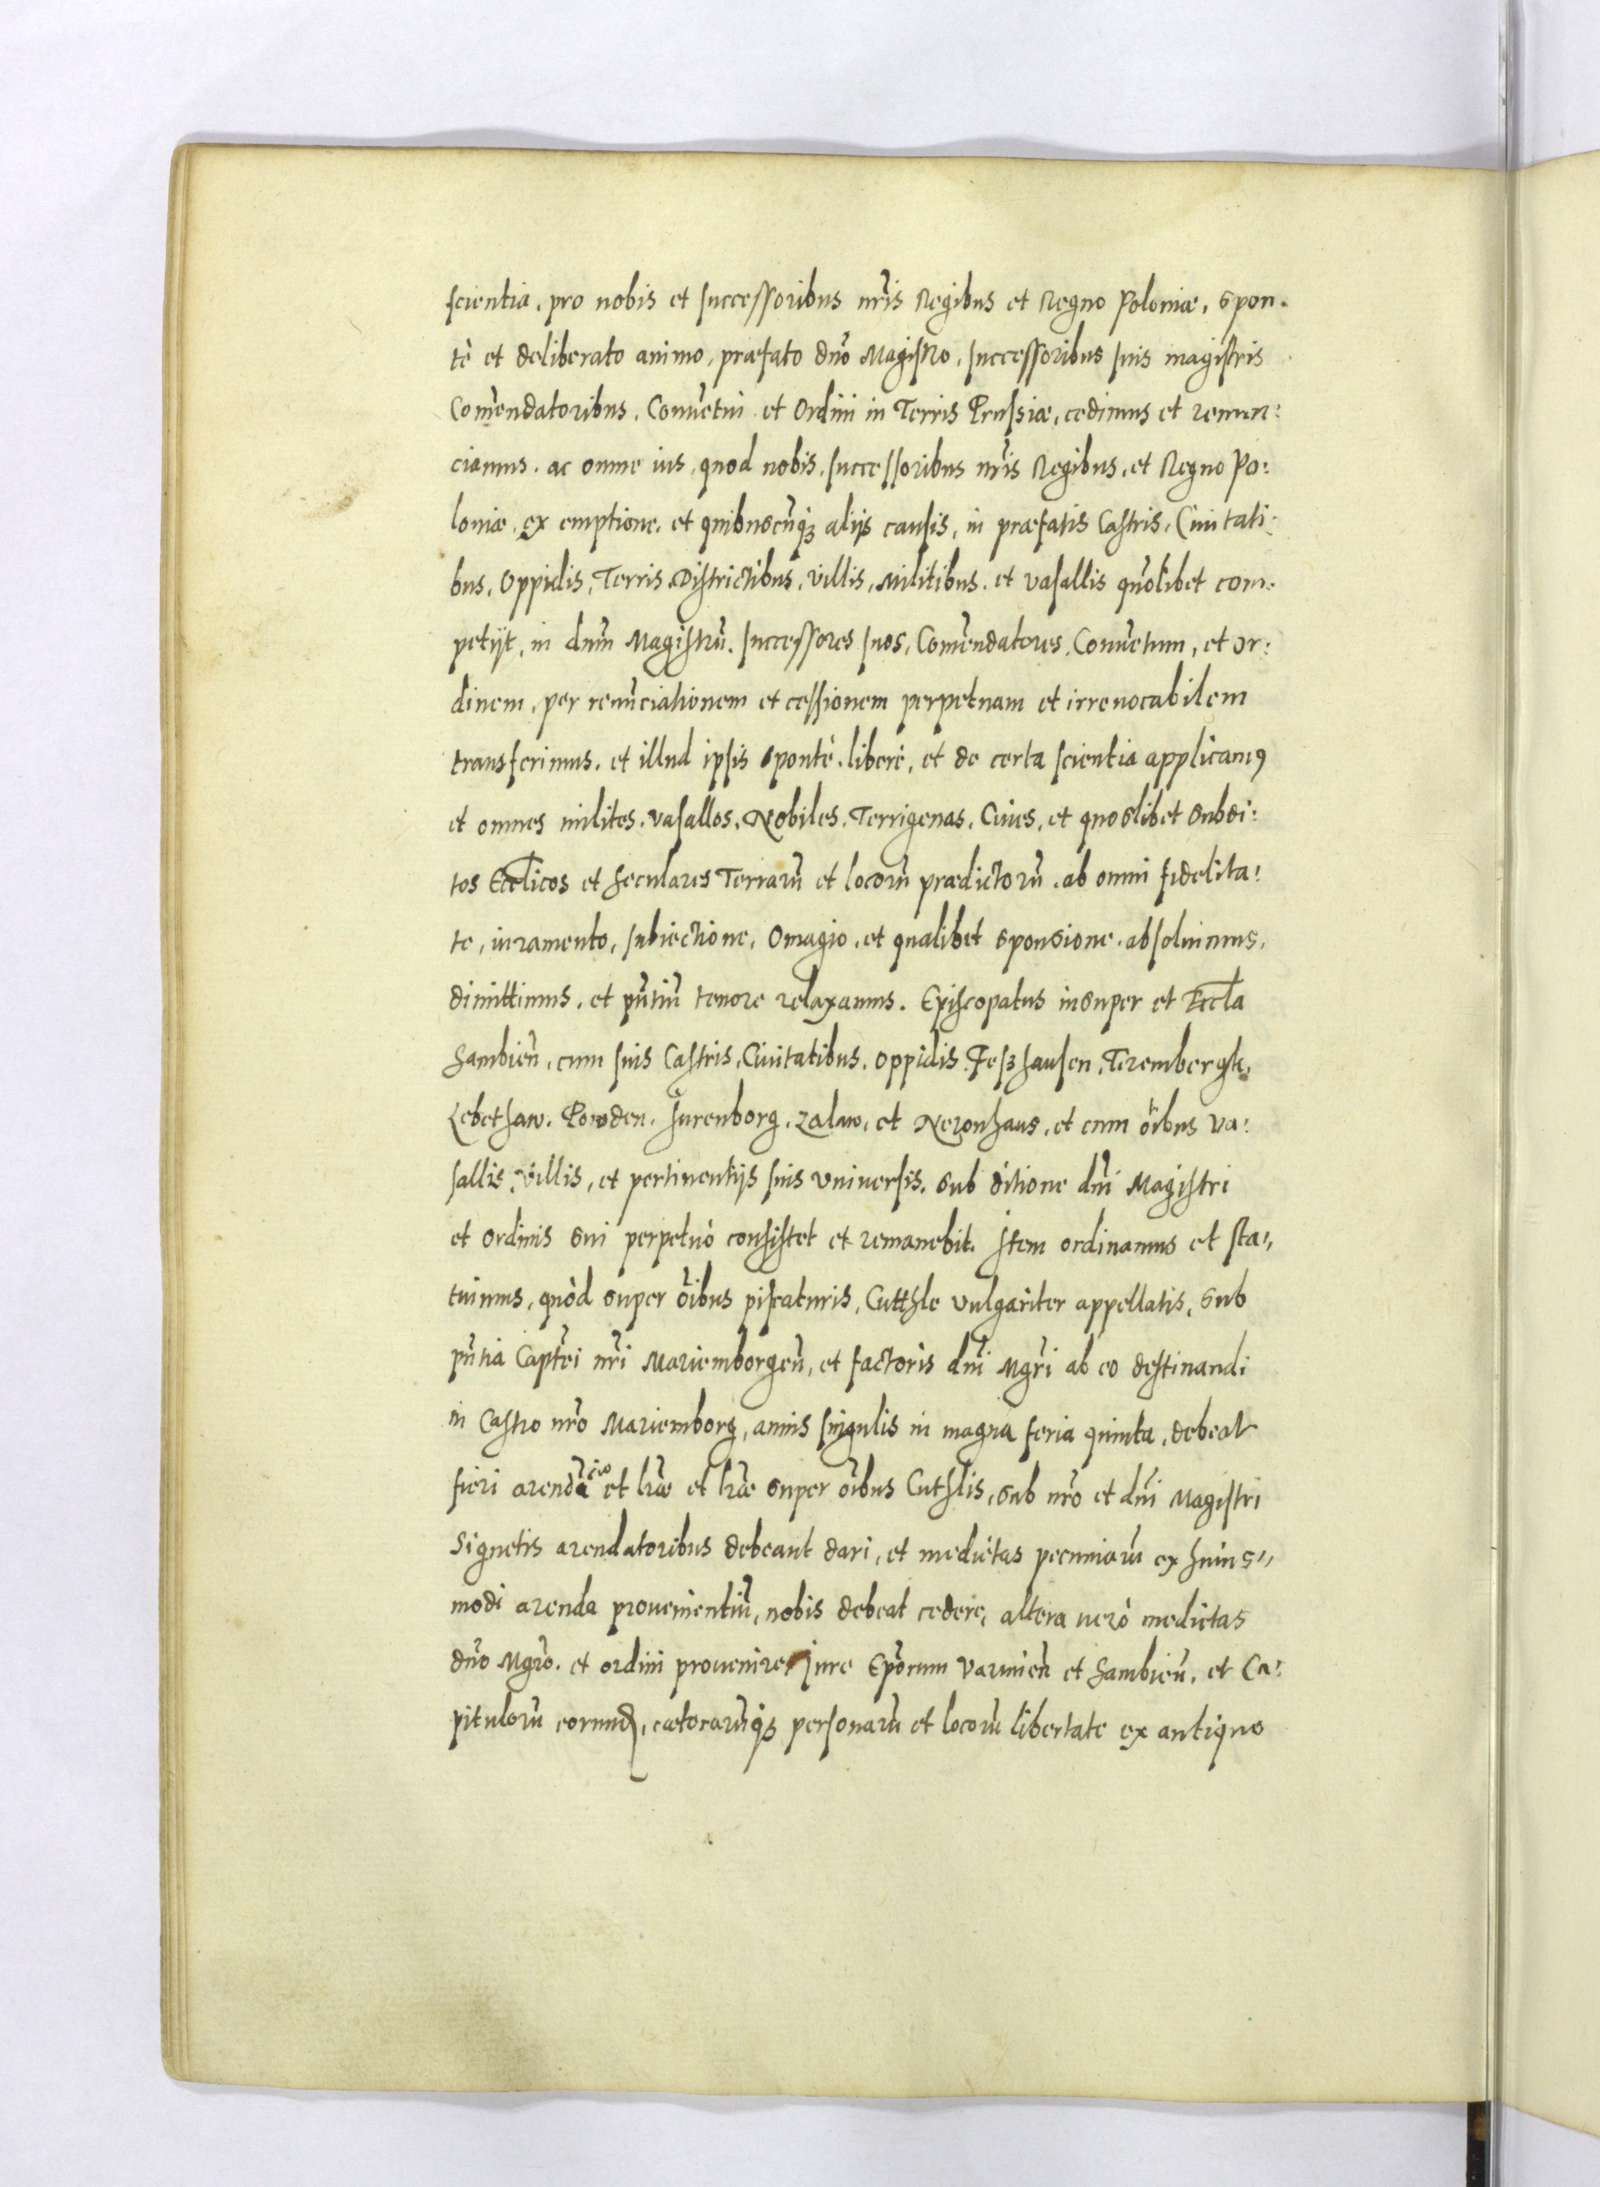 scientia, pro nobis et successoribus nr̃is Regibus et Regno Poloniæ, spon-
tè et deliberato animo, præfato dño Magistro, successoribus suis magistris
Com̃endatoribus, Conuẽtui et Ordini in Terris Prussiæ, cedimus et renun:
ciamus, ac omne ius, quod nobis, successoribus nr̃is Regibus, et Regno Po:
loniæ, ex emptione, et quibuscũq₃ alijs causis, in præfatis Castris, Ciuitati:
bus, Oppidis, Terris, Districtibus, Villis, Militibus, et vasallis quõlibet com:
petijt, in dnm̃ Magistrũ, successores suos, Com̃endatores, Conuẽtum, et or:
dinem, per renũciationem et cessionem perpetuam et irreuocabilem
transferimus, et illud ipsis spontè, liberè, et de certa scientia applicamꝰ
et omnes milites, vasallos, Nobiles, Terrigenas, Ciues, et quoslibet subdi:
tos Eccl̃icos et seculares Terrarũ et locorũ prædictorũ, ab omni fidelita:
te, iuramento, subiectione, Omagio, et qualibet sponsione, absoluimus,
dimittimus, et pñtiũ tenore relaxamus. Episcopatus insuper et Eccl̃a
Sambieñ, cum suis Castris, Ciuitatibus, oppidis Feszhausen, Terembergk,
Lebethaw, Powden, Jurenborg, Zalaw, et Neronhaus, et cum õibus va:
sallis, villis, et pertinentijs suis vniuersis, sub ditione dñi Magistri
et ordinis sui perpetuò consistet et remanebit. Item ordinamus et sta„
tuimus, quòd super õibus piscaturis, Cutthle vulgariter appellatis, sub
pñtia Captẽi nr̃i Mariemborgeñ, et factoris dñi Mgr̃i ab eo destinandi
in Castro nr̃o Mariemborg, annis singulis in magna feria quinta, debeat
fieri arendacio et lr̃æ et lr̃æ super õibus Cuthlis, sub nr̃o et dñi Magistri
Signetis arendatoribus debeant dari, et medietas pecuniarũ ex huius„
modi arenda prouenientiũ, nobis debeat cedere, altera uerò medietas
dño Mgr̃o, et ordini prouenire, Jure Ep̃orum Varmieñ et Sambieñ, et Ca:
pitulorũ eorund̃, cæterarũq₃ personarũ et locorũ libertate ex antiquo